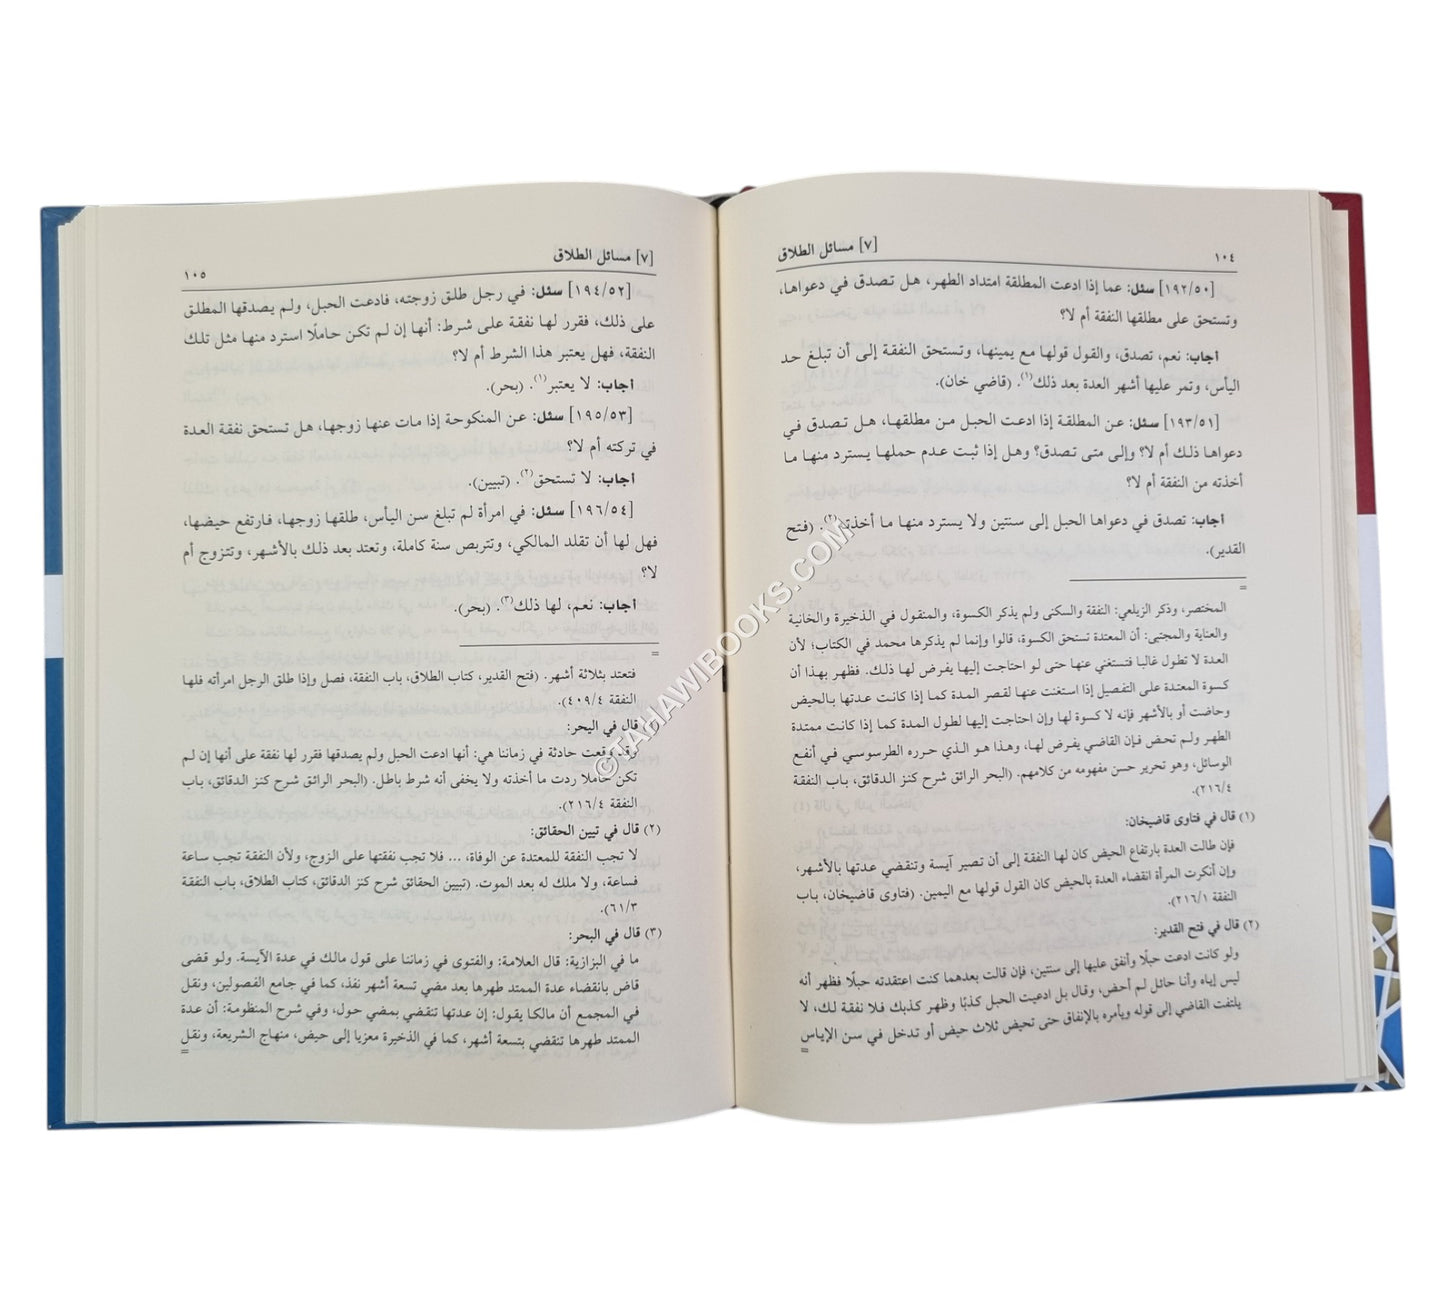 [٧] مسائل الطلاق
١٠٤
[١٩٢/٥٠] سئل: عما إذا ادعت المطلقة امتداد الطهر، هل تصدق في دعواها،
وتستحق على مطلقها النفقة أم لا؟
اجاب: نعم، تصدق، والقول قولها مع يمينها، وتستحق النفقة إلى أن تبلغ حد
اليأس، وتمر عليها أشهر العدة بعد ذلك(١). (قاضي خان).
[١٩٣/٥١] سئل: عن المطلقة إذا ادعت الحبل من مطلقها، هل تصدق في
دعواها ذلك أم لا؟ وإلى متى تصدق؟ وهل إذا ثبت عدم حملها يسترد منها ما
أخذته من النفقة أم لا؟
اجاب: تصدق في دعواها الحبل إلى سنتين ولا يسترد منها ما أخذته(٢). (فتح
القدير).
=
المختصر، وذكر الزيلعي: النفقة والسكنى ولم يذكر الكسوة، والمنقول في الذخيرة والخانية
والعناية والمجتبى: أن المعتدة تستحق الكسوة، قالوا وإنما لم يذكرها محمد في الكتاب؛ لأن
العدة لا تطول غالبا فتستغني عنها حتى لو احتاجت إليها يفرض لها ذلك. فظهر بهذا أن
كسوة المعتدة على التفصيل إذا استغنت عنها لقصر المدة كما إذا كانت عدتها بالحيض
وحاضت أو بالأشهر فإنه لا كسوة لها وإن احتاجت إليها لطول المدة كما إذا كانت ممتدة
الطهر ولم تحض فإن القاضي يفرض لها، وهذا هو الذي حرره الطرسوسي في أنفع
الوسائل، وهو تحرير حسن مفهومه من كلامهم. (البحر الرائق شرح كنز الدقائق، باب النفقة
٢١٦/٤).
(١) قال في فتاوى قاضيخان:
فإن طالت العدة بارتفاع الحيض كان لها النفقة إلى أن تصير آيسة وتنقضي عدتها بالأشهر،
وإن أنكرت المرأة انقضاء العدة بالحيض كان القول قولها مع اليمين. (فتاوى قاضيخان، باب
النفقة ٢١٦/١).
(٢) قال في فتح القدير:
ولو كانت ادعت حبلًا وأنفق عليها إلى سنتين، فإن قالت بعدهما كنت اعتقدته حبلًا فظهر أنه
ليس إياه وأنا حائل لم أحض، وقال بل ادعيت الحبل كذبًا وظهر كذبك فلا نفقة لك، لا
يلتفت القاضي إلى قوله ويأمره بالإنفاق حتى تحيض ثلاث حيض أو تدخل في سن الإياس
=
[٧] مسائل الطلاق
١٠٥
[١٩٤/٥٢] سئل: في رجل طلق زوجته، فادعت الحبل، ولم يصدقها المطلق
على ذلك، فقرر لها نفقة على شرط: أنها إن لم تكن حاملًا استرد منها مثل تلك
النفقة، فهل يعتبر هذا الشرط أم لا؟
اجاب: لا يعتبر(١). (بحر).
[١٩٥/٥٣] سئل: عن المنكوحة إذا مات عنها زوجها، هل تستحق نفقة العدة
في تركته أم لا؟
اجاب: لا تستحق(٢). (تبيين).
[١٩٦/٥٤] سئل: في امرأة لم تبلغ سن اليأس، طلقها زوجها، فارتفع حيضها،
فهل لها أن تقلد المالكي، وتتربص سنة كاملة، وتعتد بعد ذلك بالأشهر، وتتزوج أم
لا؟
اجاب: نعم، لها ذلك(٣). (بحر).
=
فتعتد بثلاثة أشهر. (فتح القدير، كتاب الطلاق، باب النفقة، فصل وإذا طلق الرجل امرأته فلها
النفقة ٤٠٩/٤).
قال في البحر:
وقد وقعت حادثة في زماننا هي: أنها ادعت الحبل ولم يصدقها فقرر لها نفقة على أنها إن لم
تكن حاملًا ردت ما أخذته ولا يخفى أنه شرط باطل. (البحر الرائق شرح كنز الدقائق، باب
النفقة ٢١٦/٤).
(٢) قال في تبيين الحقائق:
لا تجب النفقة للمعتدة عن الوفاة، ... فلا تجب نفقتها على الزوج، ولأن النفقة تجب ساعة
فساعة، ولا ملك له بعد الموت. (تبيين الحقائق شرح كنز الدقائق، كتاب الطلاق، باب النفقة
٦١/٣).
(٣) قال في البحر:
ما في البزازية: قال العلامة: والفتوى في زماننا على قول مالك في عدة الآيسة. ولو قضى
قاض بانقضاء عدة الممتد طهرها بعد مضي تسعة أشهر نفذ، كما في جامع الفصولين، ونقل
في المجمع أن مالكا يقول: إن عدتها تنقضي بمضي حول، وفي شرح المنظومة: أن عدة
الممتد طهرها تنقضي بتسعة أشهر، كما في الذخيرة معزيا إلى حيض، منهاج الشريعة، ونقل
=
©TAHAWIBOOKS.COM